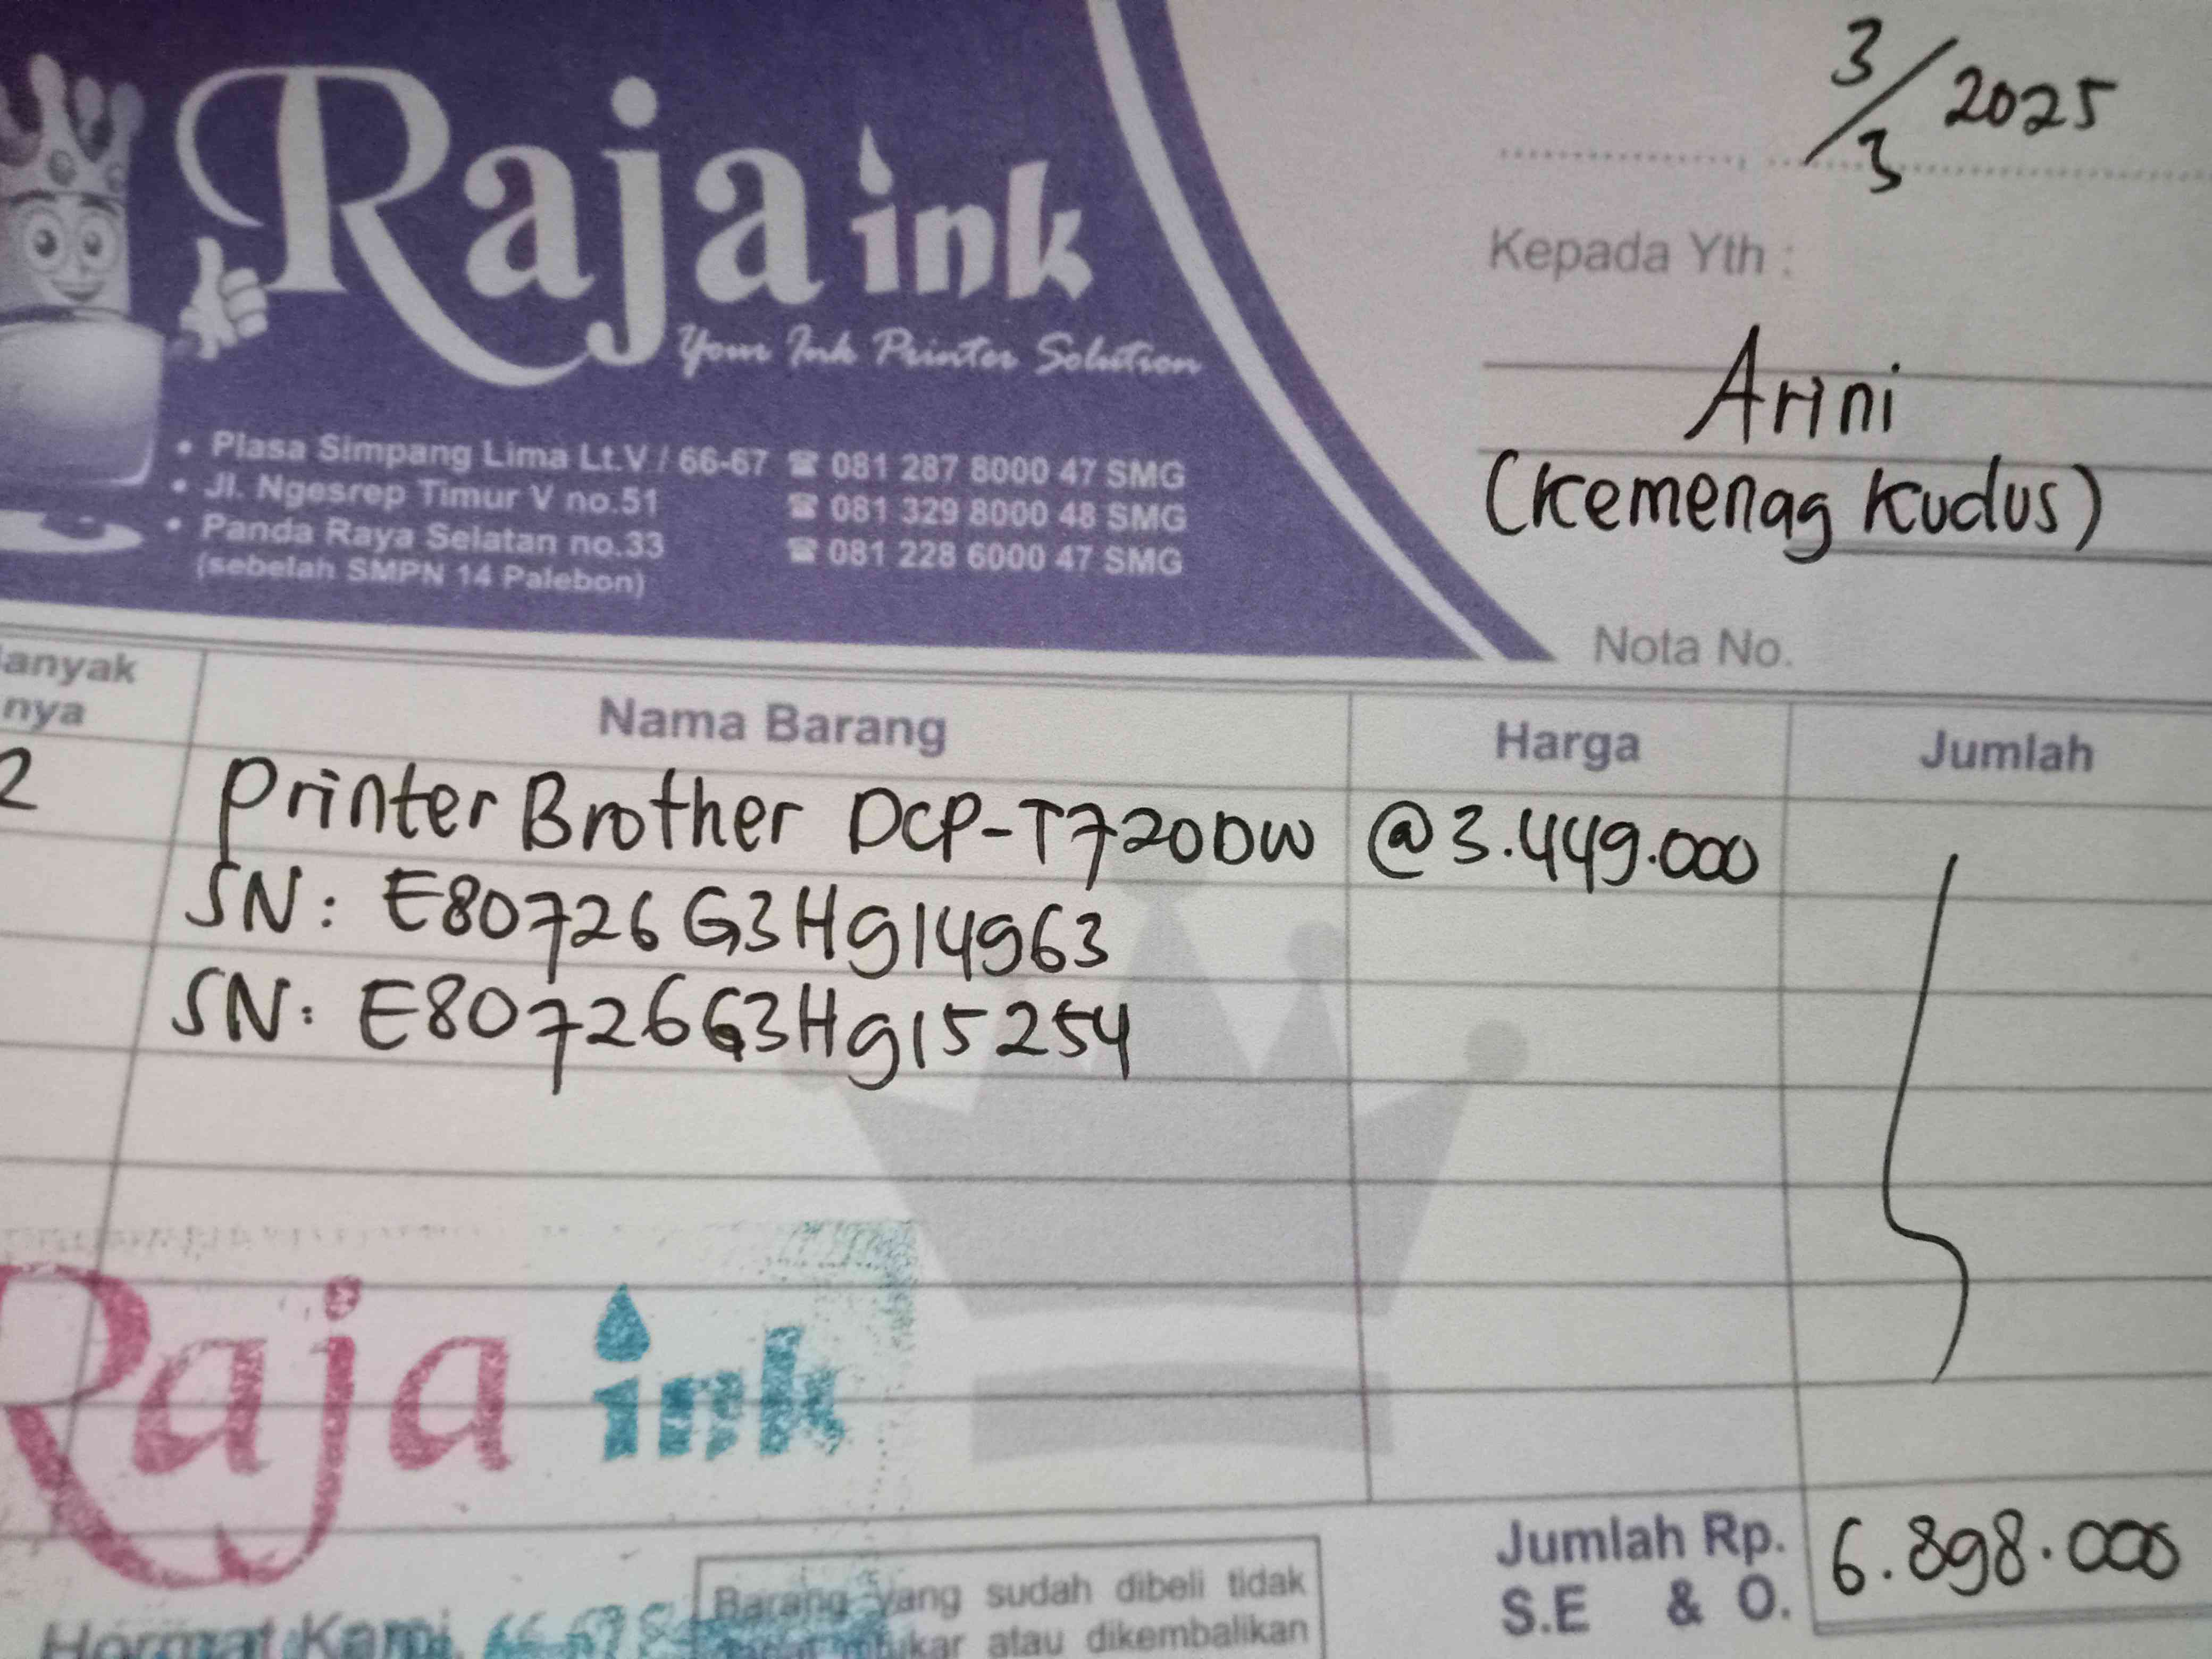 Raja ink
Your Ink Printer Solution
• Plasa Simpang Lima Lt.V / 66-67 ☎ 081 287 8000 47 SMG
• Jl. Ngesrep Timur V no.51 ☎ 081 329 8000 48 SMG
• Panda Raya Selatan no.33 ☎ 081 228 6000 47 SMG
(sebelah SMPN 14 Palebon)
3/3 2025
Kepada Yth :
Arini
(Kemenag Kudus)
Nota No.
anyak nya Nama Barang Harga Jumlah
2 Printer Brother DCP-T720DW @3.449.000
SN: E80726G3H914963
SN: E80726G3H915254
Raja ink
Jumlah Rp. 6.898.000
S.E & O.
Hormat Kami,
Barang yang sudah dibeli tidak
atau dikembalikan